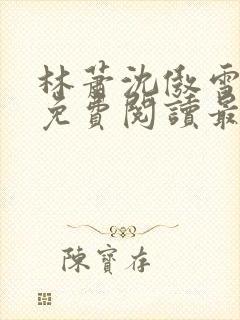 林蕭沈傲雪
免費閱讀最
陳寶存